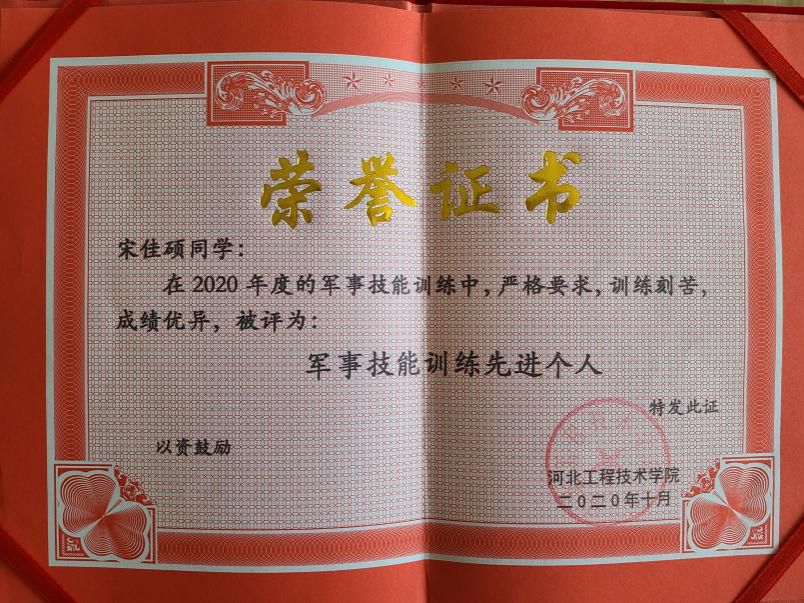 荣誉证书
宋佳硕同学：
在 2020 年度的军事技能训练中，严格要求，训练刻苦，
成绩优异，被评为：
军事技能训练先进个人
特发此证
以资鼓励
河北工程技术学院
二〇二〇年十月